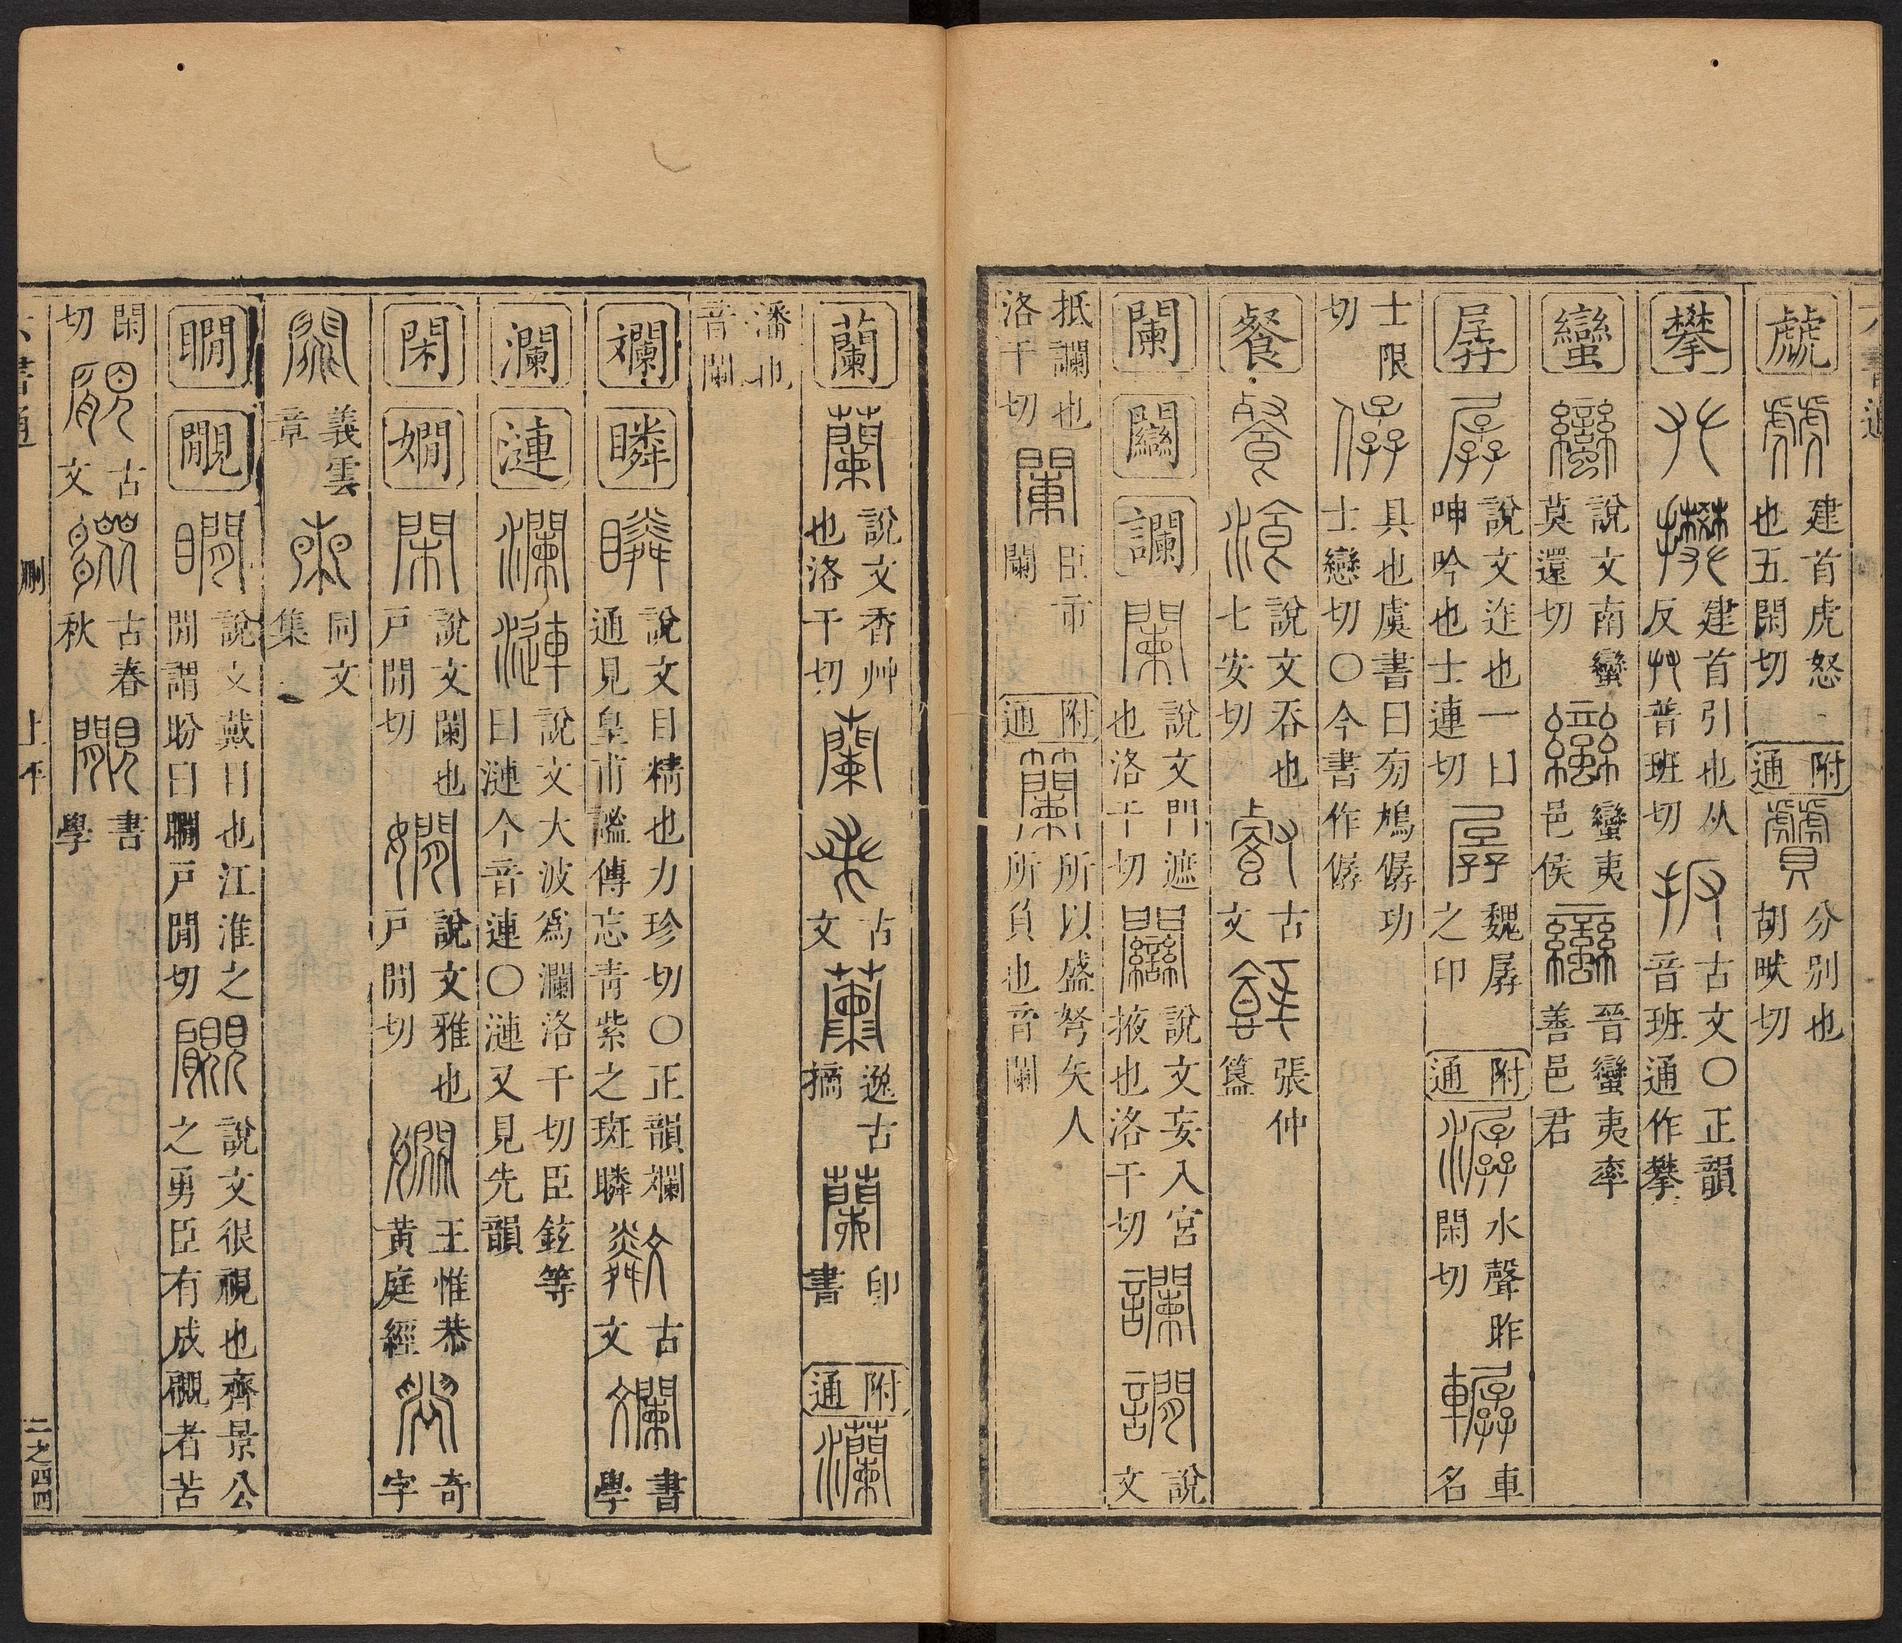 六書通
虤 建首虎怒也五閑切 附通 贙 分別也胡畎切
攀 建首引也从反𠬞普班切 古文〇正韻音班通作攀
蠻 說文南蠻莫還切 蠻夷邑侯 晉蠻夷率善邑君
孱 說文迮也一曰呻吟也士連切 魏孱之印 附通 潺 水聲昨閑切 轏 車名
士限切 孨 具也虞書曰旁鳩僝功士戀切〇今書作僝
餐 說文吞也七安切 古文 張仲簠
闌 䦨 讕 說文門遮也洛干切 說文妄入宮掖也洛干切 說文
抵讕也洛干切 臣市闌 附通 籣 所以盛弩矢人所負也音闌
蘭 說文香艸也洛干切 古文 逸古摘 印書 附通 灡
潘也音闌
斕 瞵 說文目精也力珍切〇正韻斕通見皇甫謐傳忘青紫之斑瞵 古文 書學
瀾 漣 說文大波爲瀾洛干切臣鉉等曰漣今音連〇漣又見先韻
閑 嫺 說文闌也戶閒切 說文雅也戶閒切 王惟恭黃庭經 奇字
義雲章 同文集
瞷 覸 說文戴目也江淮之閒謂眄曰瞷戶閒切 說文很視也齊景公之勇臣有成覸者苦
閑切 古文 古春秋 書學
六書通 刪 上平 二之四四